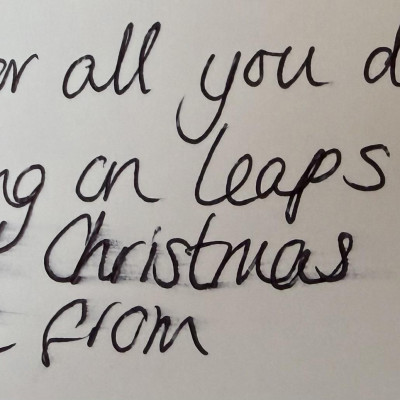 or all you d
ng on leaps
Christmas
from